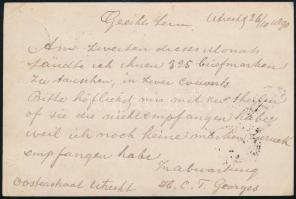 Geehrter Herr Utrecht 26/10 1890
Am zweiten dieses Monats
sandte ich ihnen 325 briefmarken
zu tauschen, in zwei couverts
Bitte höflichst mir mit zu theilen
of sie die nicht empfangen habe
weil ich noch keine marken zurück
empfangen habe
In abwartung
Oosterstraat Utrecht H. C. T. Georges